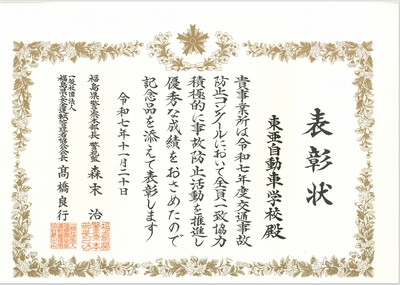 表彰状
東亜自動車学校殿
貴事業所は令和七年度交通事故
防止コンクールにおいて全員一致協力
積極的に事故防止活動を推進し
優秀な成績をおさめたので
記念品を添えて表彰します
令和七年十一月二十日
福島県警察本部長 警視監 森末 治
一般社団法人
福島県安全運転管理者協会会長 髙橋良行